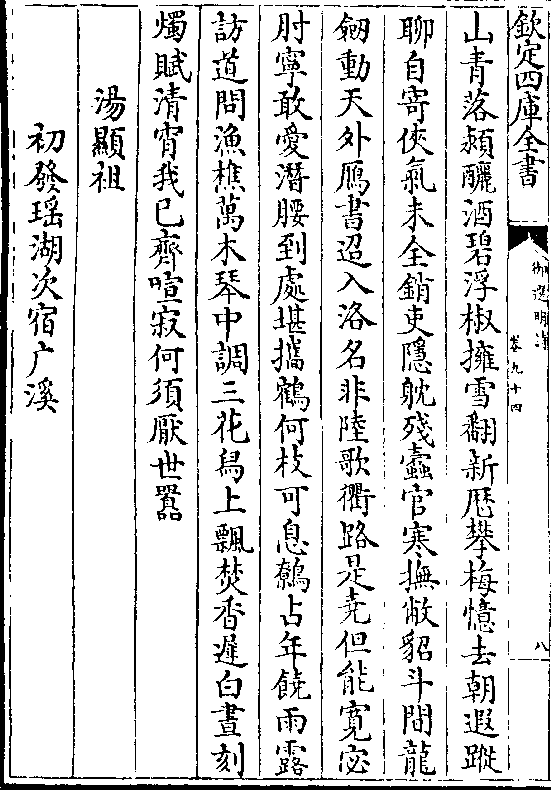 欽定四庫全書
御選明詩
卷九十四
八
山青落潁釃酒碧浮椒擁雪翻新歴攀梅憶去朝遐蹤
聊自寄俠氣未全銷吏隱躭殘蠧官寒撫敝貂斗間龍
劒動天外鴈書迢入洛名非陸歌衢路是堯但能寛宓
肘寧敢愛潛腰到處堪攜鶴何枝可息鷦占年饒雨露
訪道問漁樵萬木琴中調三花舄上飄焚香遲白晝刻
燭賦清宵我已齊喧寂何須厭世囂
湯顯祖
初發瑶湖次宿广溪